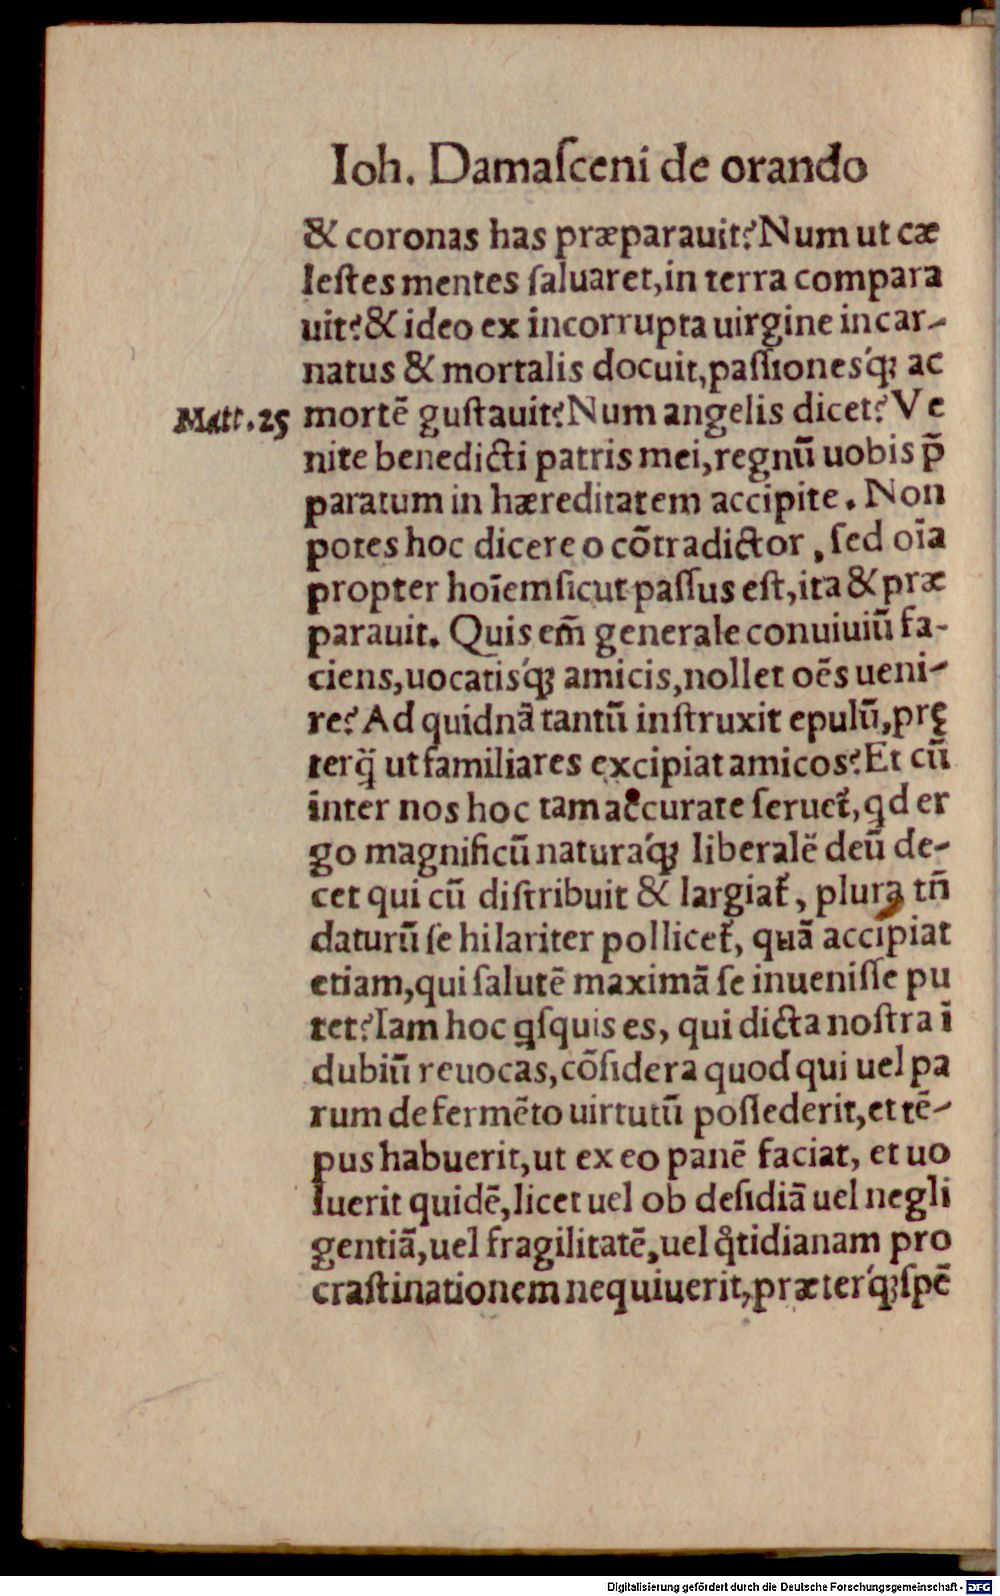 Ioh. Damaſceni de orando
& coronas has præparauit? Num ut cæ
leſtes mentes ſaluaret, in terra compara
uit? & ideo ex incorrupta uirgine incar-
natus & mortalis docuit, paſſionesq́ꝫ ac
Matt. 25 mortē guſtauit? Num angelis dicet? Ve
nite benedicti patris mei, regnū uobis p̄
paratum in hæreditatem accipite. Non
potes hoc dicere o cōtradictor, ſed oīa
propter hoīem ſicut paſſus eſt, ita & præ
parauit. Quis em̄ generale conuiuiū fa-
ciens, uocatisq́ꝫ amicis, nollet oēs ueni-
re? Ad quidnā tantū inſtruxit epulū, prę
terq̃ ut familiares excipiat amicos? Et cū
inter nos hoc tam accurate ſeruet᷑, qd er
go magnificū naturaq́ꝫ liberalē deū de-
cet qui cū diſtribuit & largiat᷑, plura tn̄
daturū ſe hilariter pollicet᷑, quā accipiat
etiam, qui ſalutē maximā ſe inueniſſe pu
tet? Iam hoc qſquis es, qui dicta noſtra ī
dubiū reuocas, cōſidera quod qui uel pa
rum de fermēto uirtutū poſſederit, et tē-
pus habuerit, ut ex eo panē faciat, et uo
luerit quidē, licet uel ob deſidiā uel negli
gentiā, uel fragilitatē, uel qͦtidianam pro
craſtinationem nequiuerit, præterq́ꝫ ſpē
Digitalisierung gefördert durch die Deutsche Forschungsgemeinschaft - DFG